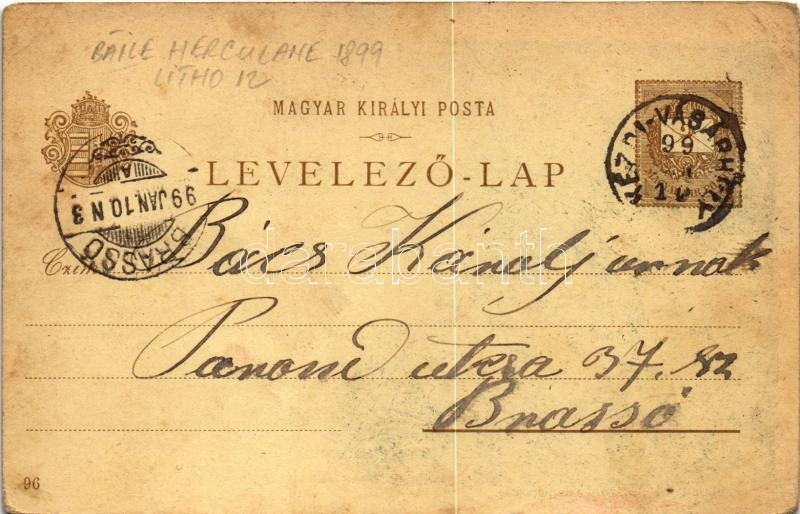 BĂILE HERCULANE 1899
LITHO 12
MAGYAR KIRÁLYI POSTA
LEVELEZŐ-LAP
KÉZDI-VÁSÁRHELY
99
1
10
BRASSÓ
99 JAN. 10 N 3
Czím
Bács Károly urnak
utcza 37. sz
Brassó
96
darabanth